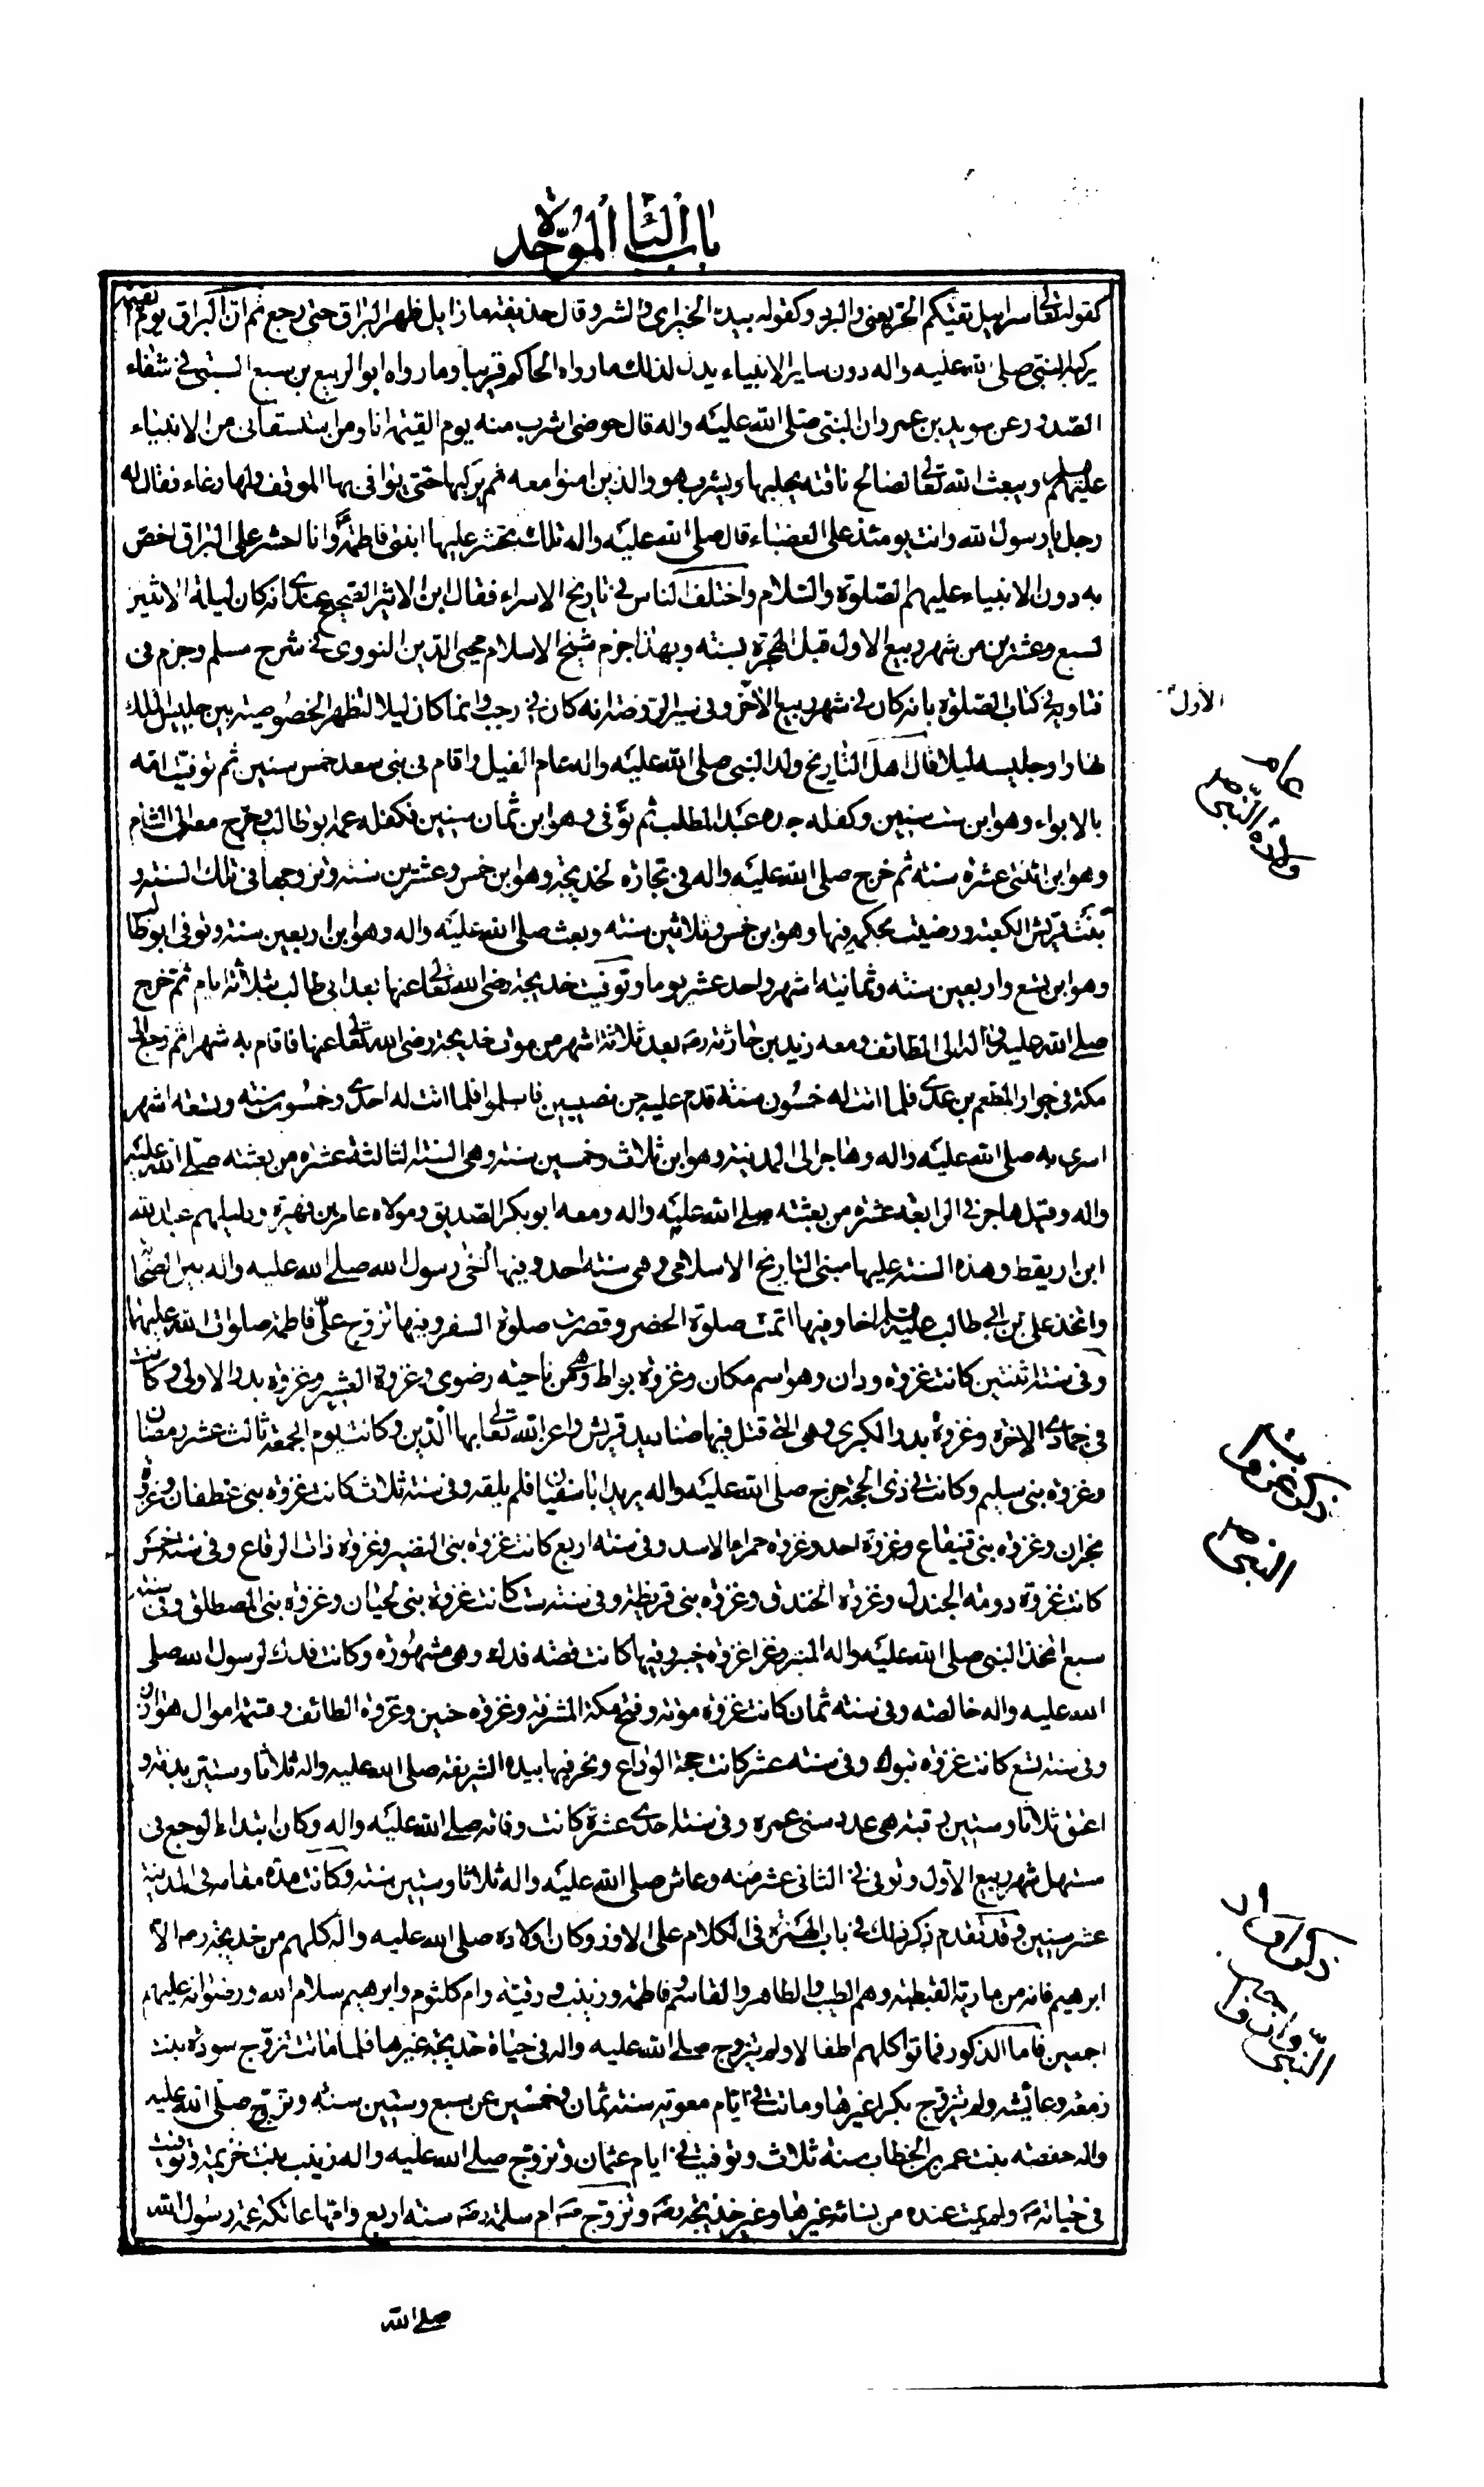 باب الباء الموحدة
كقوله تعالى سرابيل تقيكم الحر يعني والبرد وكقوله بيده الخير اي والشر وقال حذيفة ما زايل ظهر البراق حتى رجع ثم ان البراق يوم القيمة
يركبها النبي صلى الله عليه واله دون ساير الانبياء يدل لذلك ما رواه الحاكم قريبا وما رواه ابو الربيع بن سبع السبتي في شفاء
الصدور عن سويد بن عمرو ان النبي صلى الله عليه واله قال حوضي اشرب منه يوم القيمة انا ومن استسقاني من الانبياء
عليهم السلم ويبعث الله تعالى لصالح ناقته يحلبها ويشرب هو والذين امنوا معه ثم يركبها حتى يوافى بها الموقف ولها رغاء فقال له
رجل يا رسول الله وانت يومئذ على العضباء قال صلى الله عليه واله تلك تحشر عليها ابنتي فاطمة وانا احشر على البراق اخص
به دون الانبياء عليهم الصلوة والسلام واختلف الناس في تاريخ الاسراء فقال ابن الاثير الصحيح عندي انه كان ليلة الاثنين
لسبع وعشرين من شهر ربيع الاول قبل الهجرة بسنة وبهذا جزم شيخ الاسلام محيي الدين النووي في شرح مسلم وجزم في
فتاويه في كتاب الصلوة بانه كان في شهر ربيع الاخر وفي سير الروضة انه كان في رجب وانما كان ليلا لتظهر الخصوصية بين جليس الملك
نهارا وجليسه ليلا قال اهل التاريخ ولد النبي صلى الله عليه واله عام الفيل واقام في بني سعد خمس سنين ثم توفيت امه
بالابواء وهو ابن ست سنين وكفله جده عبد المطلب ثم توفى وهو ابن ثمان سنين فكفله عمه ابو طالب وخرج معه الى الشام
وهو ابن اثنتي عشرة سنة ثم خرج صلى الله عليه واله في تجارة لخديجة وهو ابن خمس وعشرين سنة وتزوجها في تلك السنة و
بنت قريش الكعبة ورضيت بحكمه فيها وهو ابن خمس وثلاثين سنة وبعث صلى الله عليه واله وهو ابن اربعين سنة وتوفى ابو طالب
وهو ابن تسع واربعين سنة وثمانية اشهر واحد عشر يوما وتوفيت خديجة رضي الله تعالى عنها بعد ابي طالب بثلاثة ايام ثم خرج
صلى الله عليه واله الى الطائف ومعه زيد بن حارثة رضه بعد ثلاثة اشهر من موت خديجة رضي الله تعالى عنها فاقام به شهرا ثم رجع الى
مكة في جوار المطعم بن عدي فلما اتت له خمسون سنة قدم عليه جن نصيبين فاسلموا فلما اتت له احدى وخمسون سنة وتسعة اشهر
اسري به صلى الله عليه واله وهاجر الى المدينة وهو ابن ثلاث وخمسين سنة وهي السنة الثالثة عشرة من بعثته صلى الله عليه
واله وقيل هاجر في الرابعة عشرة من بعثته صلى الله عليه واله ومعه ابو بكر الصديق ومولاه عامر بن فهيرة ودليلهم عبد الله
ابن اريقط وهذه السنة عليها مبنى التاريخ الاسلامي وهي سنة احد وفيها اخى رسول الله صلى الله عليه واله بين الصحابة
واتخذ علي بن ابي طالب عليه السلم اخا وفيها اتمت صلوة الحضر وقصرت صلوة السفر وفيها تزوج علي فاطمة صلوات الله عليهما
وفي سنة اثنتين كانت غزوة ودان وهو اسم مكان وغزوة بواط وهي من ناحية رضوى وغزوة العشيرة وغزوة بدر الاولى وكانت
في جمادى الاخرة وغزوة بدر الكبرى وهي التي قتل فيها صناديد قريش واعز الله تعالى بها الدين وكانت يوم الجمعة ثالث عشر رمضان
وغزوة بني سليم وكانت في ذي الحجة خرج صلى الله عليه واله يريد ابا سفيان فلم يلقه وفي سنة ثلاث كانت غزوة بني غطفان وغزوة
نجران وغزوة بني قينقاع وغزوة احد وغزوة حمراء الاسد وفي سنة اربع كانت غزوة بني النضير وغزوة ذات الرقاع وفي سنة خمس
كانت غزوة دومة الجندل وغزوة الخندق وغزوة بني قريظة وفي سنة ست كانت غزوة بني لحيان وغزوة بني المصطلق وفي سنة
سبع اتخذ النبي صلى الله عليه واله المنبر وغزا غزوة خيبر وفيها كانت قصة فدك وهي مشهورة وكانت فدك لرسول الله صلى
الله عليه واله خالصة وفي سنة ثمان كانت غزوة موتة وفتح مكة المشرفة وغزوة حنين وغزوة الطائف وقسمة اموال هوازن
وفي سنة تسع كانت غزوة تبوك وفي سنة عشر كانت حجة الوداع ونحر فيها بيده الشريفة صلى الله عليه واله ثلاثا وستين بدنة و
اعتق ثلاثا وستين رقبة هي عدد سني عمره وفي سنة احدى عشرة كانت وفاته صلى الله عليه واله وكان ابتداء الوجع في
مستهل شهر ربيع الاول وتوفي في الثاني عشر منه وعاش صلى الله عليه واله ثلاثا وستين سنة وكانت مدة مقامه في المدينة
عشر سنين وقد تقدم ذكر ذلك في باب الهمزة في الكلام على الاوز وكان اولاده صلى الله عليه واله كلهم من خديجة رضه الا
ابرهيم فانه من مارية القبطية وهم الطيب والطاهر والقاسم وفاطمة وزينب ورقية وام كلثوم وابرهيم سلام الله ورضوانه عليهم
اجمعين فاما الذكور فماتوا كلهم اطفالا ولم يتزوج صلى الله عليه واله في حياة خديجة غيرها فلما ماتت تزوج سودة بنت
زمعة وعائشة ولم يتزوج بكرا غيرها وماتت في ايام معوية سنة ثمان وخمسين عن سبع وستين سنة وتزوج صلى الله عليه
واله حفصة بنت عمر بن الخطاب سنة ثلاث وتوفيت في ايام عثمان وتزوج صلى الله عليه واله زينب بنت خزيمة وتوفيت
في حياته صه ولم يمت عنده من نسائه غيرها وغير خديجة رضه وتزوج صه ام سلمة رضه سنة اربع وامها عاتكة عمة رسول الله
صلى الله
الاول
عام
ولادة النبي ص
ذكر غزوات
النبي ص
ذكر اولاد
النبي وازواجه